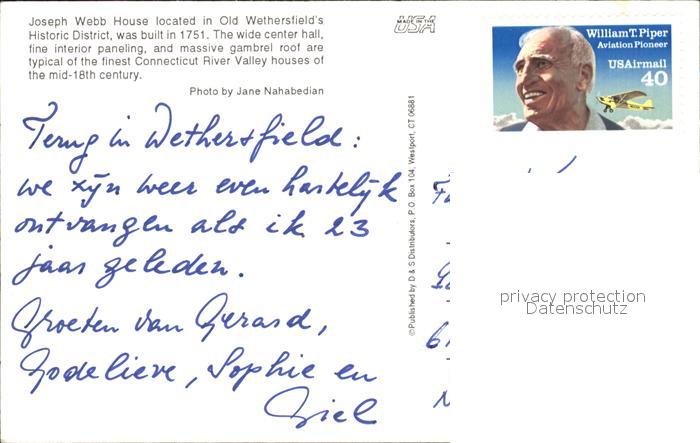 Joseph Webb House located in Old Wethersfield's
Historic District, was built in 1751. The wide center hall,
fine interior paneling, and massive gambrel roof are
typical of the finest Connecticut River Valley houses of
the mid-18th century.
Photo by Jane Nahabedian
MADE IN THE
USA
William T. Piper
Aviation Pioneer
USAirmail
40
Terug in Wethersfield:
we zijn weer even hartelijk
ontvangen als ik 23
jaar geleden.
Groeten van Gerard,
Godelieve, Sophie en
Giel
©Published by D & S Distributors, P.O. Box 104, Westport, CT 06881
privacy protection
Datenschutz